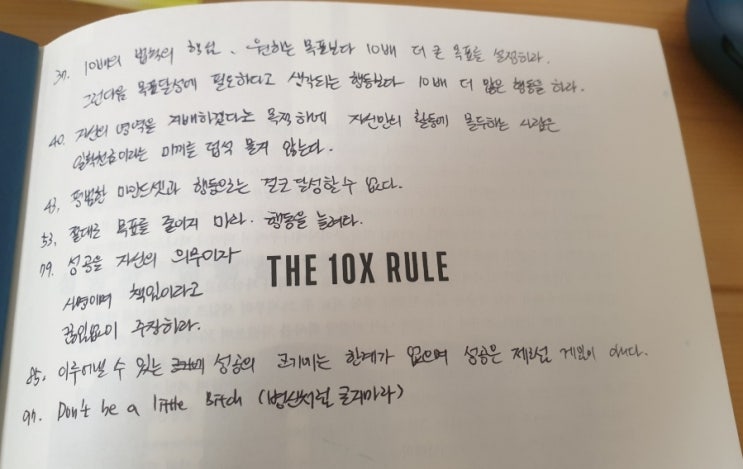 37. 10배의 법칙의 핵심. 원하는 목표보다 10배 더 큰 목표를 설정하라.
그런다음 목표달성에 필요하다고 생각되는 행동보다 10배 더 많은 행동을 하라.
40. 자신의 영역을 지배하겠다는 목적 하에 자신만의 활동에 몰두하는 사람은
일확천금이라는 미끼를 덥석 물지 않는다.
43. 평범한 마인드셋과 행동으로는 결코 달성할 수 없다.
53. 절대로 목표를 줄이지 마라. 행동을 늘려라.
79. 성공을 자신의 의무이자
사명이며 책임이라고
끊임없이 주장하라.
THE 10X RULE
85. 이루어낼 수 있는 성공의 크기에는 한계가 없으며 성공은 제로섬 게임이 아니다.
97. Don't be a little Bitch (병신처럼 굴지마라)